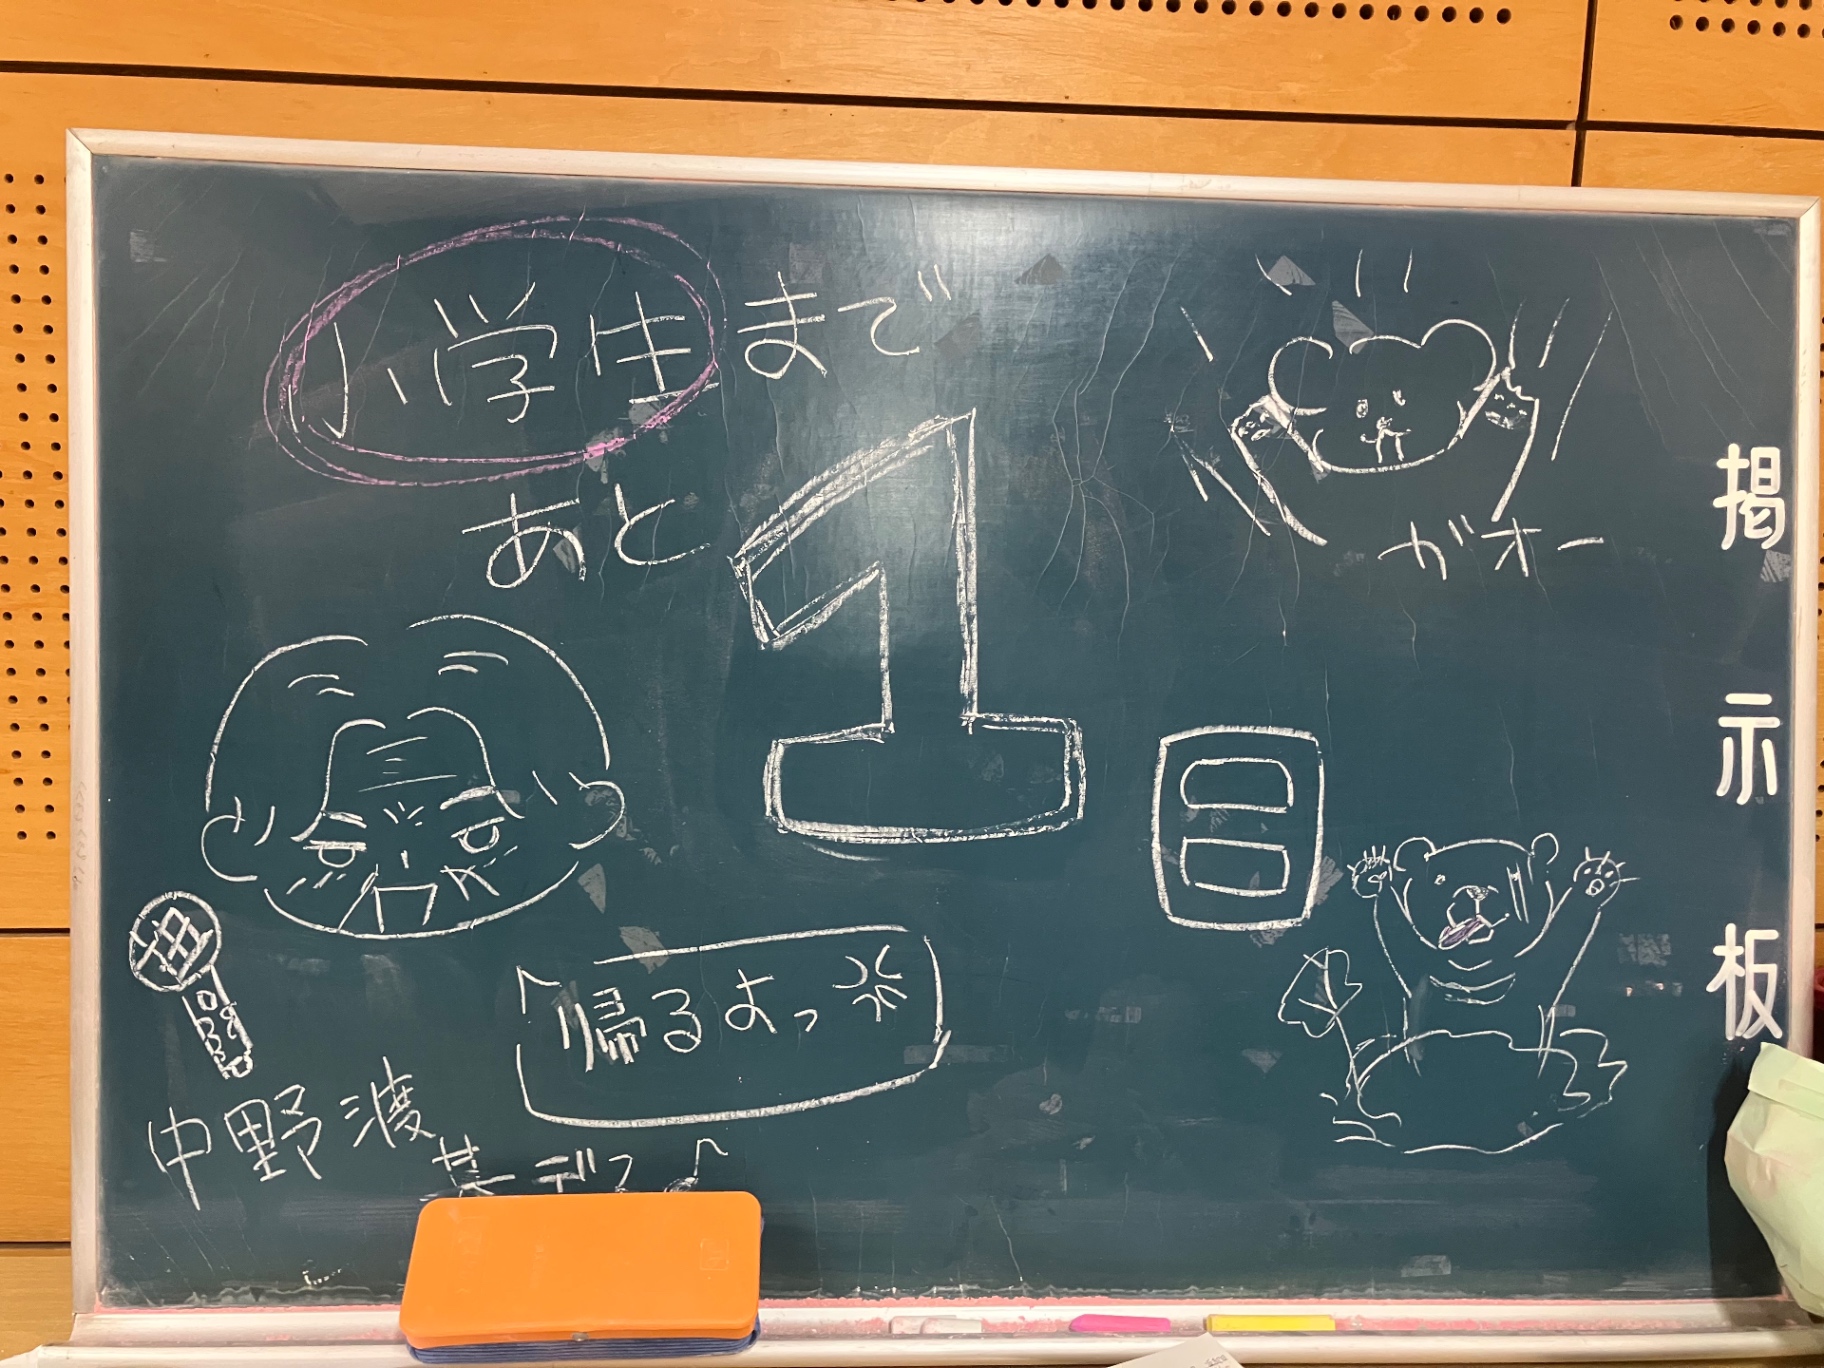 小学生まで
あと
1日
ガオー
帰るよっ
中野渡
デス♪
掲示板